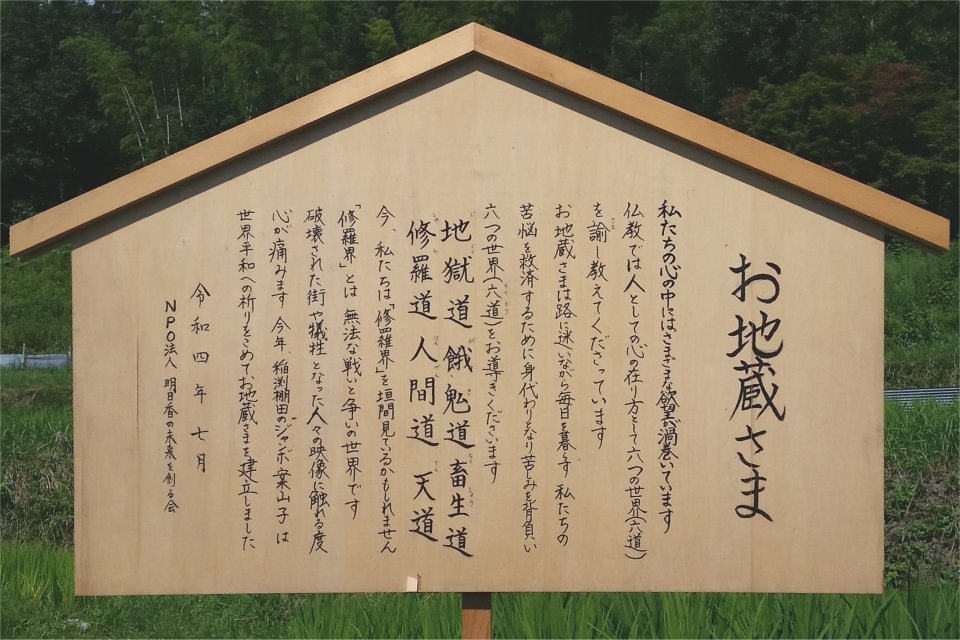 お地蔵さま
私たちの心の中にはさまざまな欲望が渦巻いています
仏教では人としての心の在り方として六つの世界(六道)
を諭し教えてくださっています
お地蔵さまは路に迷いながら毎日を暮らす 私たちの
苦悩を救済するために身代わりとなり苦しみを背負い
六つの世界(六道)をお導きくださいます
地獄道 餓鬼道 畜生道
修羅道 人間道 天道
今、私たちは「修羅界」を垣間見ているかもしれません
「修羅界」とは 無法な戦いと争いの世界です
破壊された街や犠牲となった人々の映像に触れる度
心が痛みます 今年、稲渕棚田のジャンボ案山子は
世界平和への祈りをこめてお地蔵さまを建立しました
令和四年七月
NPO法人 明日香の未来を創る会